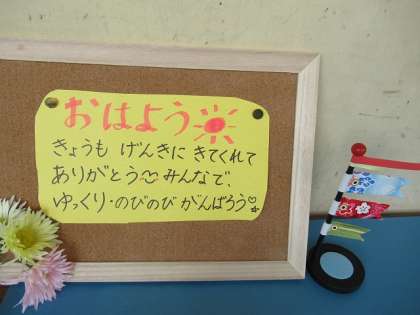 おはよう
きょうも げんきに きてくれて
ありがとう みんなで、
ゆっくり・のびのび がんばろう♡